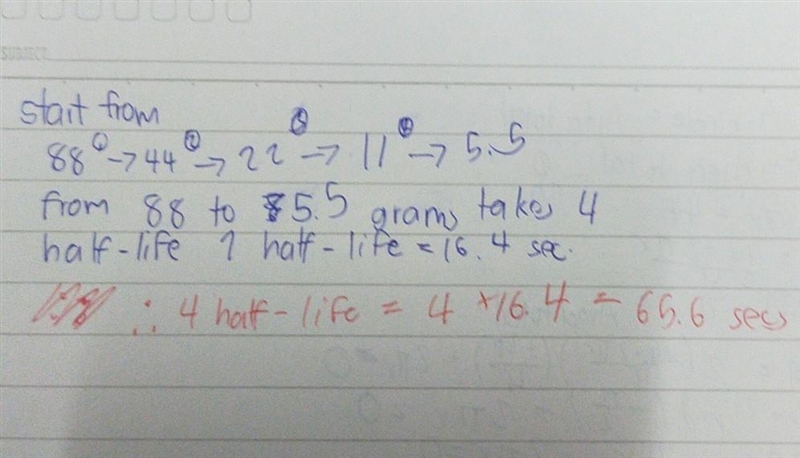 SUBJECT
start from
88 → 44 → 22 → 11 → 5.5
from 88 to 5.5 grams takes 4
half-life 1 half-life = 16.4 sec.
∴ 4 half-life = 4 × 16.4 = 65.6 secs